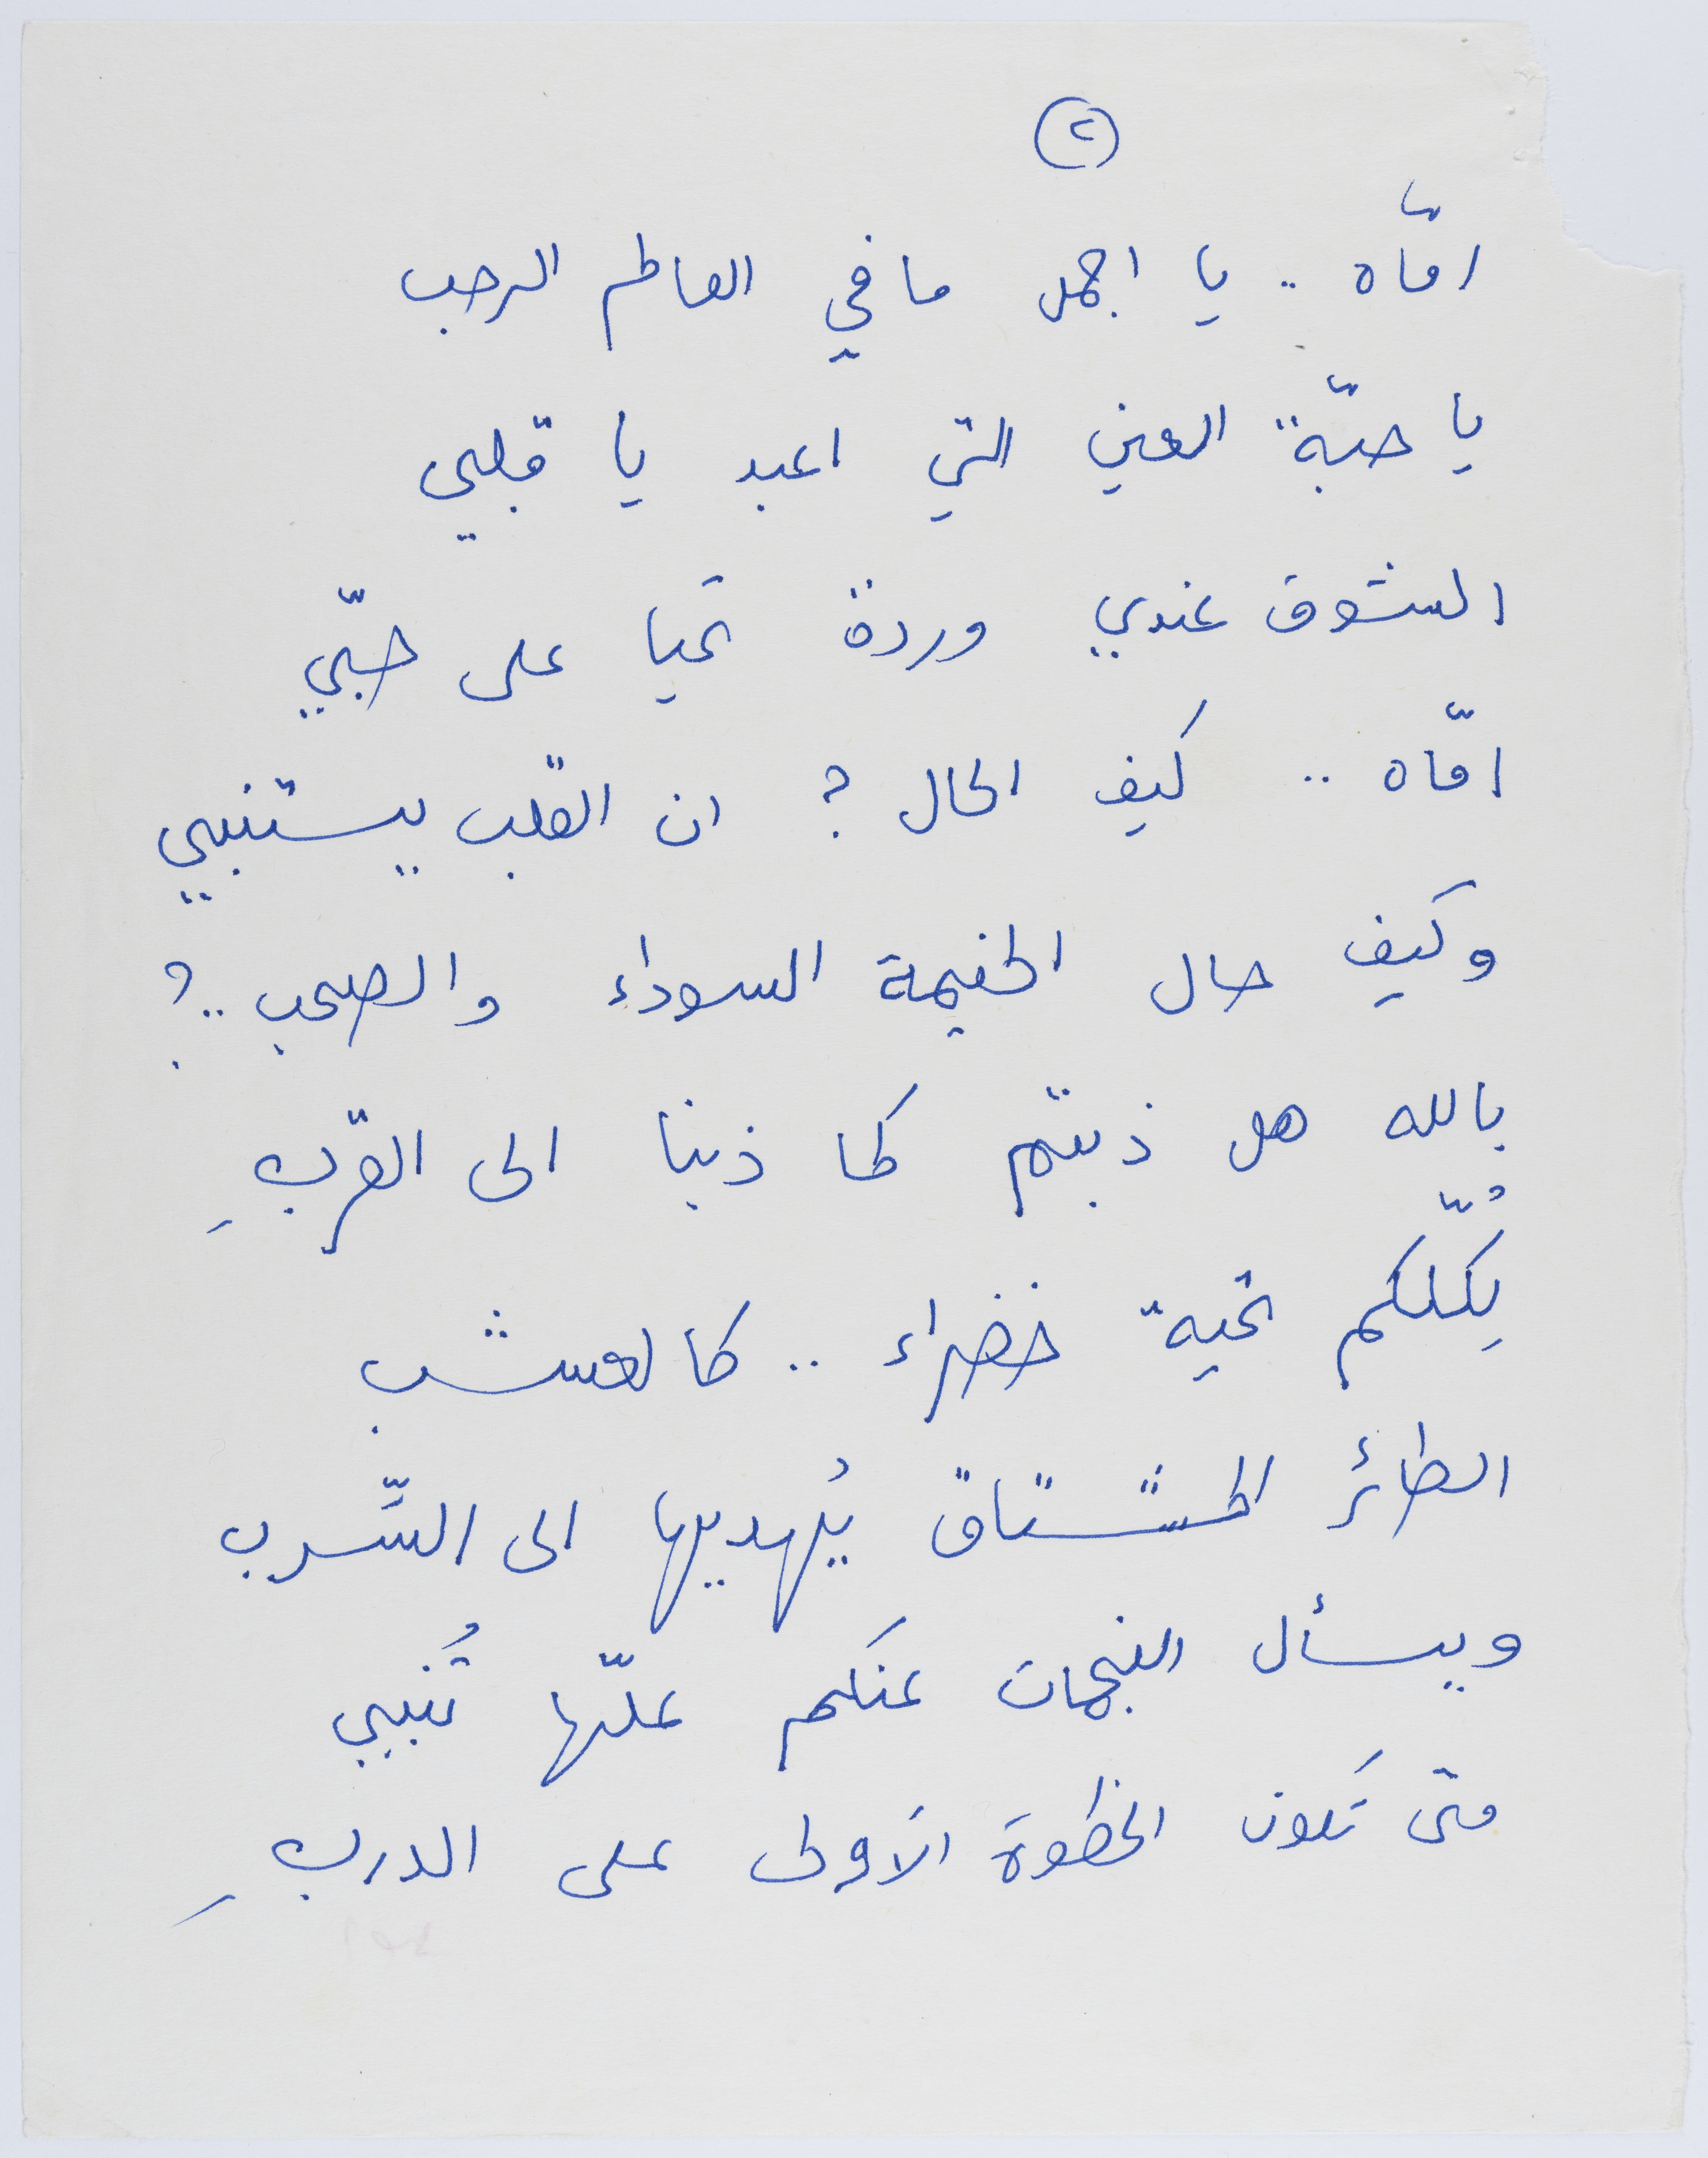 ٢
امّاه .. يا اجمل ما في العالم الرحب
يا حبّة العين التي اعبد يا قلبي
الشوق عندي وردة تحيا على حبّي
امّاه .. كيف الحال ? ان القلب يستنبي
وكيف حال الخيمة السوداء والصحب ..?
بالله هل ذبتم كما ذبنا الى القربِ
لِكُلّكم تحية خضراء .. كالعشب
الطائر المشتاق يُهديها الى السِّرب
ويسأل النجمات عنكم علّها تُنبي
متى تكون الخطوة الأولى على الدربِ